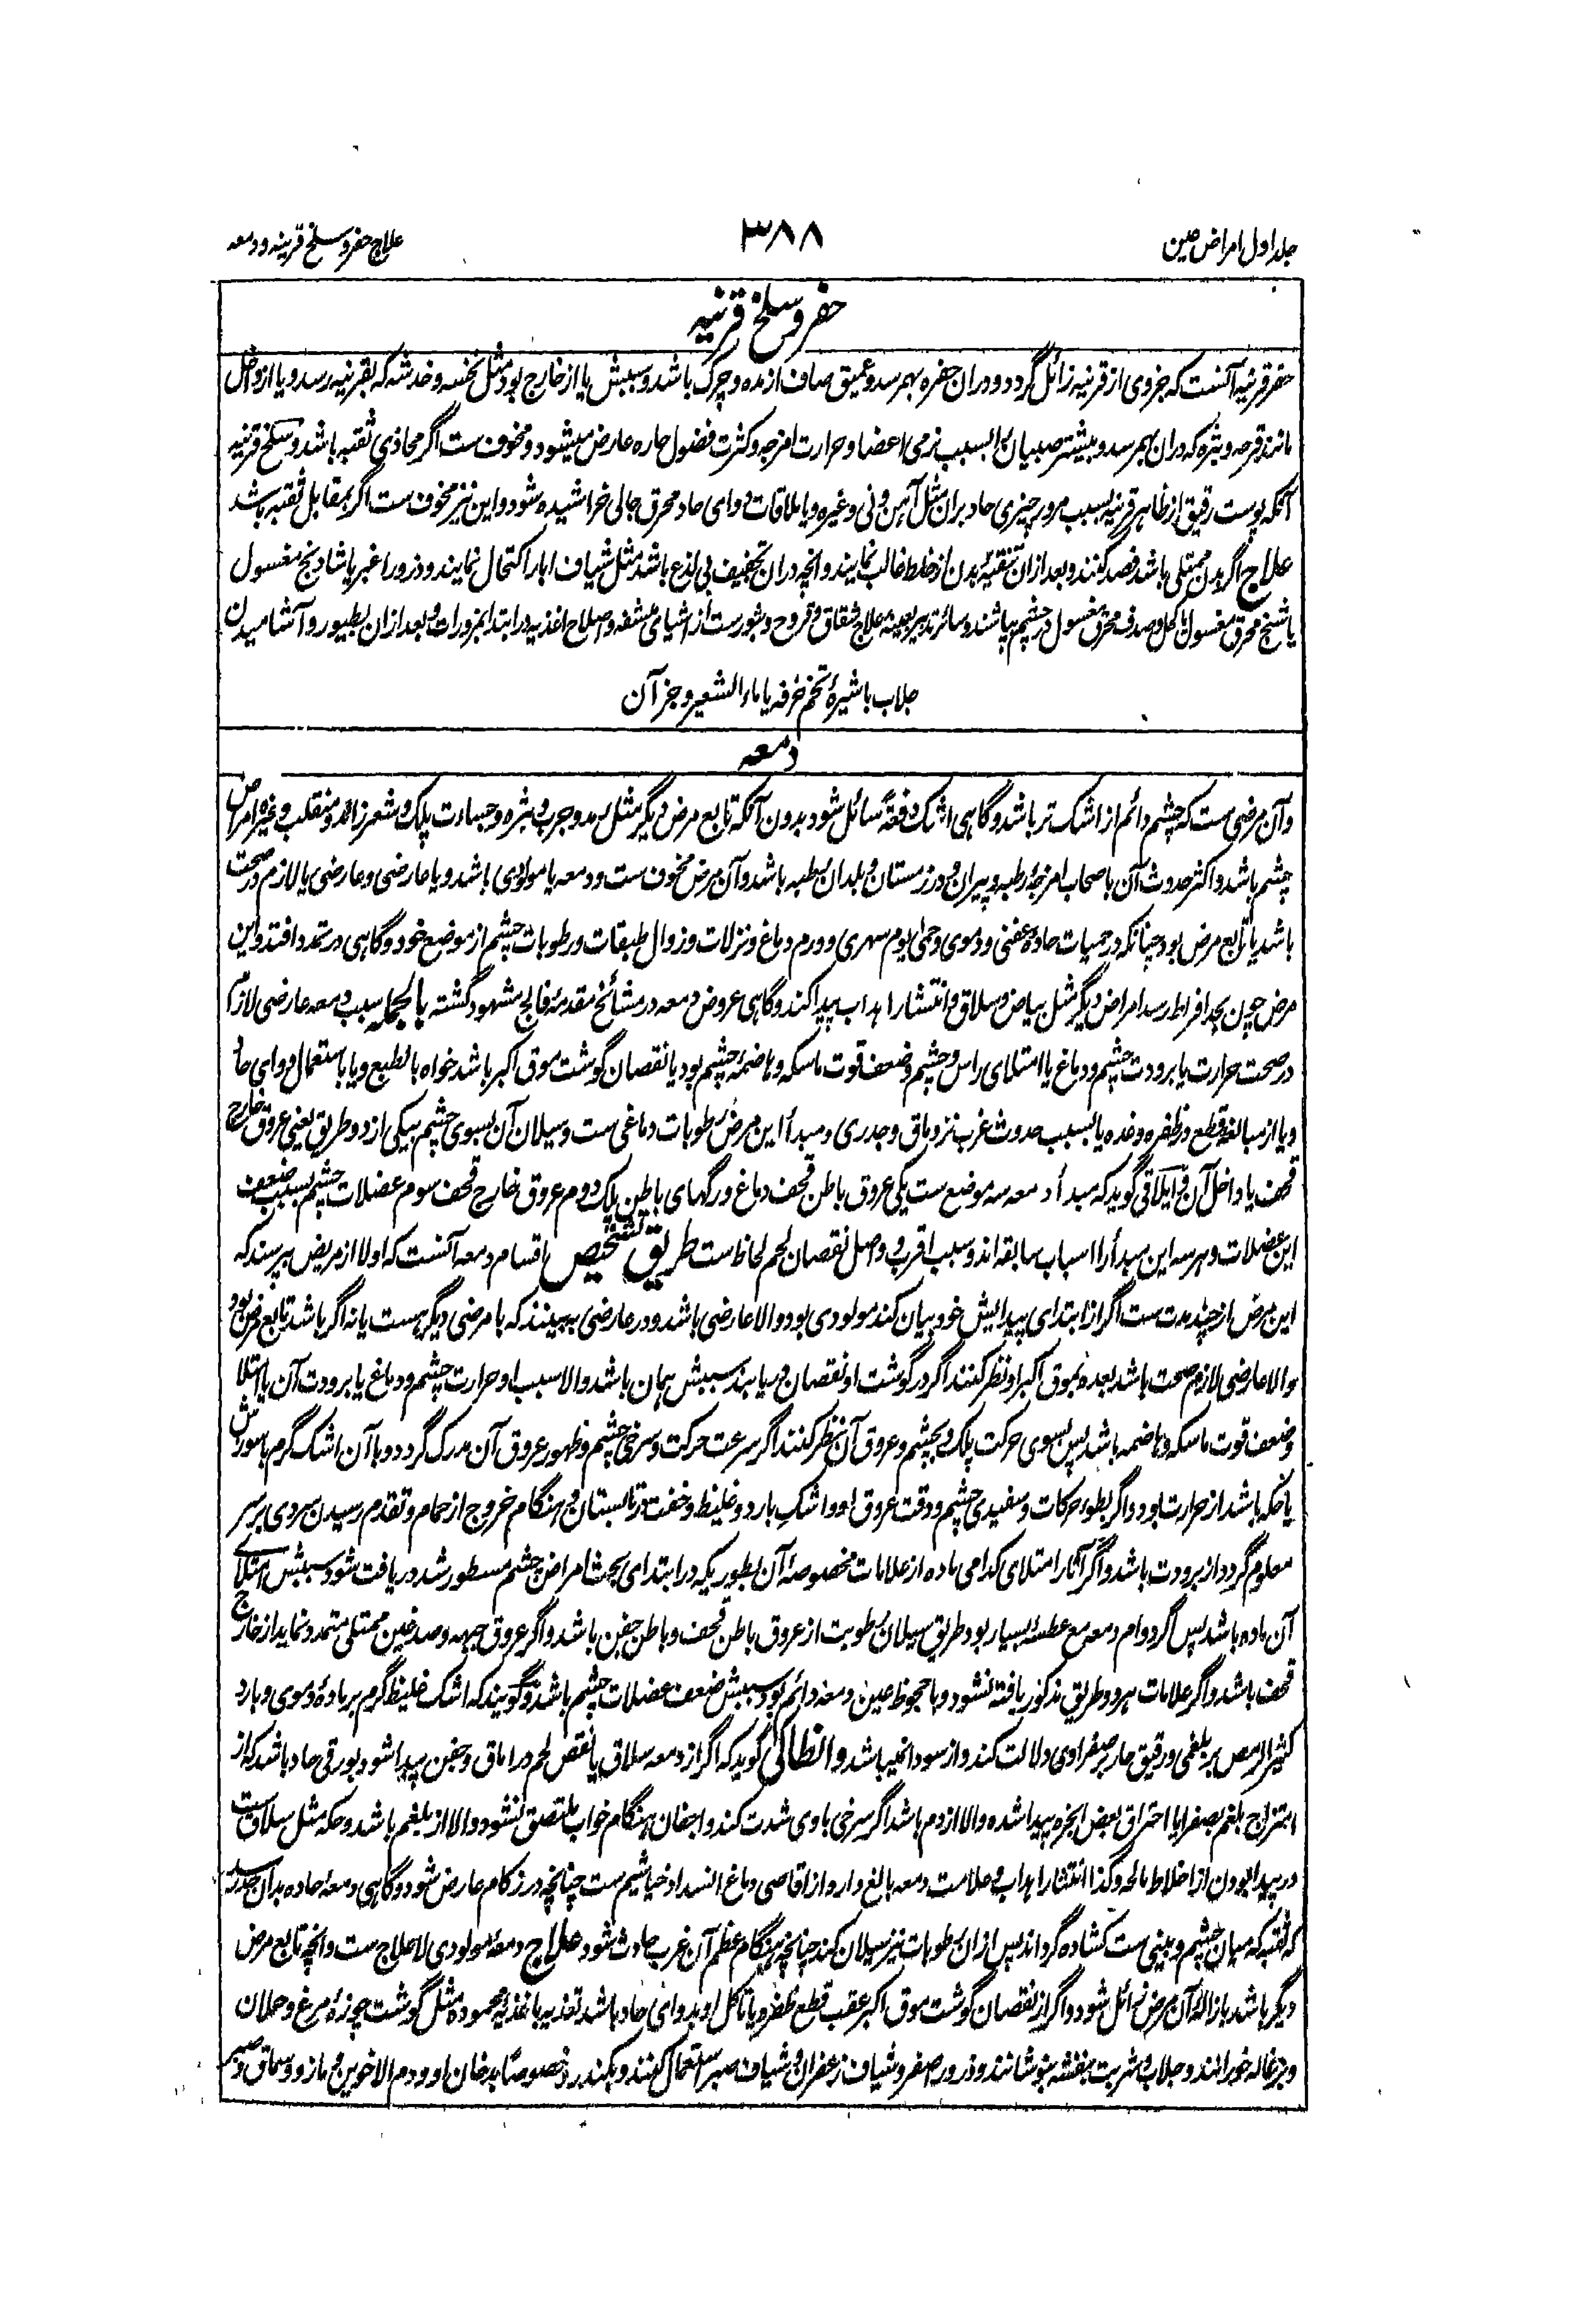 جلد اول امراض عین
۳۸۸
علاج حفر و سلخ قرینه و دمعه
حفر و سلخ قرنیه
حفر قرنیه آنست که جزوی از قرنیه زائل گردد و دران حفره بهمرسد و عمیق صاف از مده و چرک باشد و سببش یا از خارج بود مثل نخسه و خدشه که بقرنیه رسد و یا از داخل
مانند قرحه و بثره که دران بهمرسد و بیشتر صبیان را بسبب نرمی اعضا و حرارت امزجه و کثرت فضول حاره عارض میشود و مخوف ست اگر محاذی ثقبه باشد و سلخ قرنیه
آنکه پوست رقیق از ظاهر قرنیه بسبب مرور چیزی حاد بران مثل آهن و نی و غیره و یا ملاقات دوای حاد محرق جالی خراشیده شود و این نیز مخوف ست اگر بمقابل ثقبه باشد
علاج اگر بدن ممتلی باشد فصد کنند و بعد ازان تنقیه بدن از خلط غالب نمایند و انچه دران تجفیف بی لذع باشد مثل شیاف ابار اکتحال نمایند و ذرور اغبر یا شادنج مغسول
یا شنج محرق مغسول یا کحل و صدف محرق مغسول در چشم بپاشند و سائر تدبیر بعینه علاج شقاق و قروح و بثورست از اشیای منشفه و اصلاح اغذیه در ابتدا بمزورات و بعد ازان بطیور و آشامیدن
جلاب با شیرهٔ تخم خرفه یا ماء الشعیر و جز آن
دمعه
و آن مرضی ست که چشم دائم از اشک تر باشد و گاهی اشک دفعةً سائل شود بدون آنکه تابع مرض دیگر مثل رمد و جرب و بثره و جساءت پلک و شعر زائد و منقلب و غیره امراض
چشم باشد و اکثر حدوث آن باصحاب امزجهٔ رطبه و پیران و در زمستان و بلدان رطبه باشد و آن مرض مخوف ست و دمعه یا مولودی باشد و یا عارضی و عارضی یا لازم در صحت
باشد یا تابع مرض بود چنانکه در حمیات حادهٔ عفنی و دموی و حمی یوم سهری و ورم دماغ و نزلات و زوال طبقات و رطوبات چشم از موضع خود و گاهی در تمدد افتد و این
مرض چون بحد افراط رسد امراض دیگر مثل بیاض و سلاق و انتشار اهداب پیدا کند و گاهی عروض دمعه در مشائخ مقدمهٔ فالج مشهود گشته بالجمله سبب دمعه عارضی لازم
در صحت حرارت یا برودت چشم و دماغ یا امتلای راس و چشم و ضعف قوت ماسکه و هاضمهٔ چشم بود یا نقصان گوشت موق اکبر باشد خواه بالطبع و یا باستعمال دوای حاد
و یا از مبالغهٔ قطع در ظفره و غده یا بسبب حدوث غرب نزد ماق و جدری و مبدأ این مرض رطوبات دماغی ست و سیلان آن بسوی چشم بیکی از دو طریق یعنی عروق خارج
قحف یا داخل آن و ایلاقی گوید که مبدأ دمعه سه موضع ست یکی عروق باطن قحف دماغ و رگهای باطن پلک دوم عروق خارج قحف سوم عضلات چشم بسبب ضعف
این عضلات و هر سه این مبدأ را اسباب سابقه اند و سبب اقرب و واصل نقصان لحم لحاظ ست طریق تشخیص اقسام دمعه آنست که اولا از مریض بپرسند که
این مرض از چند مدت ست اگر از ابتدای پیدایش خود بیان کند مولودی بود و الا عارضی باشد و در عارضی به بینند که با مرضی دیگر هست یا نه اگر باشد تابع مرض بود
و الا عارضی لازم صحت باشد بعده بموق اکبر او نظر کنند اگر در گوشت او نقصان دریابند سببش همان باشد و الا سبب او حرارت چشم و دماغ یا برودت آن یا امتلا
و ضعف قوت ماسکه و هاضمه باشد پس بسوی حرکت پلک و بچشم و عروق آن نظر کنند اگر سرعت حرکت و سرخی چشم و ظهور عروق آن مدرک گردد و با آن اشک گرم با سوزش
یا حکه باشد از حرارت بود و اگر بطوء حرکات و سفیدی چشم و دقت عروق او و اشک بارد و غلیظ و خفت در تابستان و هنگام خروج از حمام و تقدم رسیدن سردی بر سر
معلوم گردد از برودت باشد و اگر آثار امتلای کدامی ماده از علامات مخصوصهٔ آن بطوریکه در ابتدای بحث امراض چشم مسطور شد دریافت شود سببش امتلای
آن ماده باشد پس اگر دوام دمعه مع عطسهٔ بسیار بود طریق سیلان رطوبت از عروق باطن قحف و باطن جفن باشد و اگر عروق جبهه و صدغین ممتلی متمدد نماید از خارج
قحف باشد و اگر علامات هر دو طریق مذکور یافته نشود و با جحوظ عین دمعه دائم بود سببش ضعف عضلات چشم باشد و گویند که اشک غلیظ گرم بر مادهٔ دموی و بارد
کثیر الرمص بر بلغمی و رقیق حار بر صفراوی دلالت کند و از سودا نمیباشد و انطاکی گوید که اگر از دمعه سلاق یا نقص لحم در اماق و جفن پیدا شود بورقی حاد باشد که از
امتزاج بلغم بصفرا یا احتراق بعض ابخره پیدا شده و الا از دم باشد اگر سرخی با وی شدت کند و اجفان بهنگام خواب ملتصق نشود و الا از بلغم باشد و حکه مثل سلاق ست
در پیدا بودن از اخلاط مالحه و کذا انتشار اهداب و علامت دمعه بالغ وارد از اقاصی دماغ انسداد خیاشیم ست چنانچه در زکام عارض شود و گاهی دمعهٔ حاده بدان حد رسد
که ثقبه که میان چشم و بینی ست کشاده گرداند پس ازان رطوبات نیز سیلان کند چنانچه هنگام عظم آن غرب حادث شود علاج دمعهٔ مولودی لاعلاج ست و انچه تابع مرض
دیگر باشد بازالهٔ آن مرض زائل شود و اگر از نقصان گوشت موق اکبر عقب قطع ظفره یا تاکل او بدوای حاد باشد تغذیه باغذیهٔ محموده مثل گوشت چوزهٔ مرغ و حملان
و بزغاله خورانند و جلاب و شربت بنفشه بنوشانند و ذرور اصفر و شیاف زعفران و شیاف صبر استعمال کنند و بکندر خصوصاً بدخان او و دم الاخوین و مازو و سماق و صبر